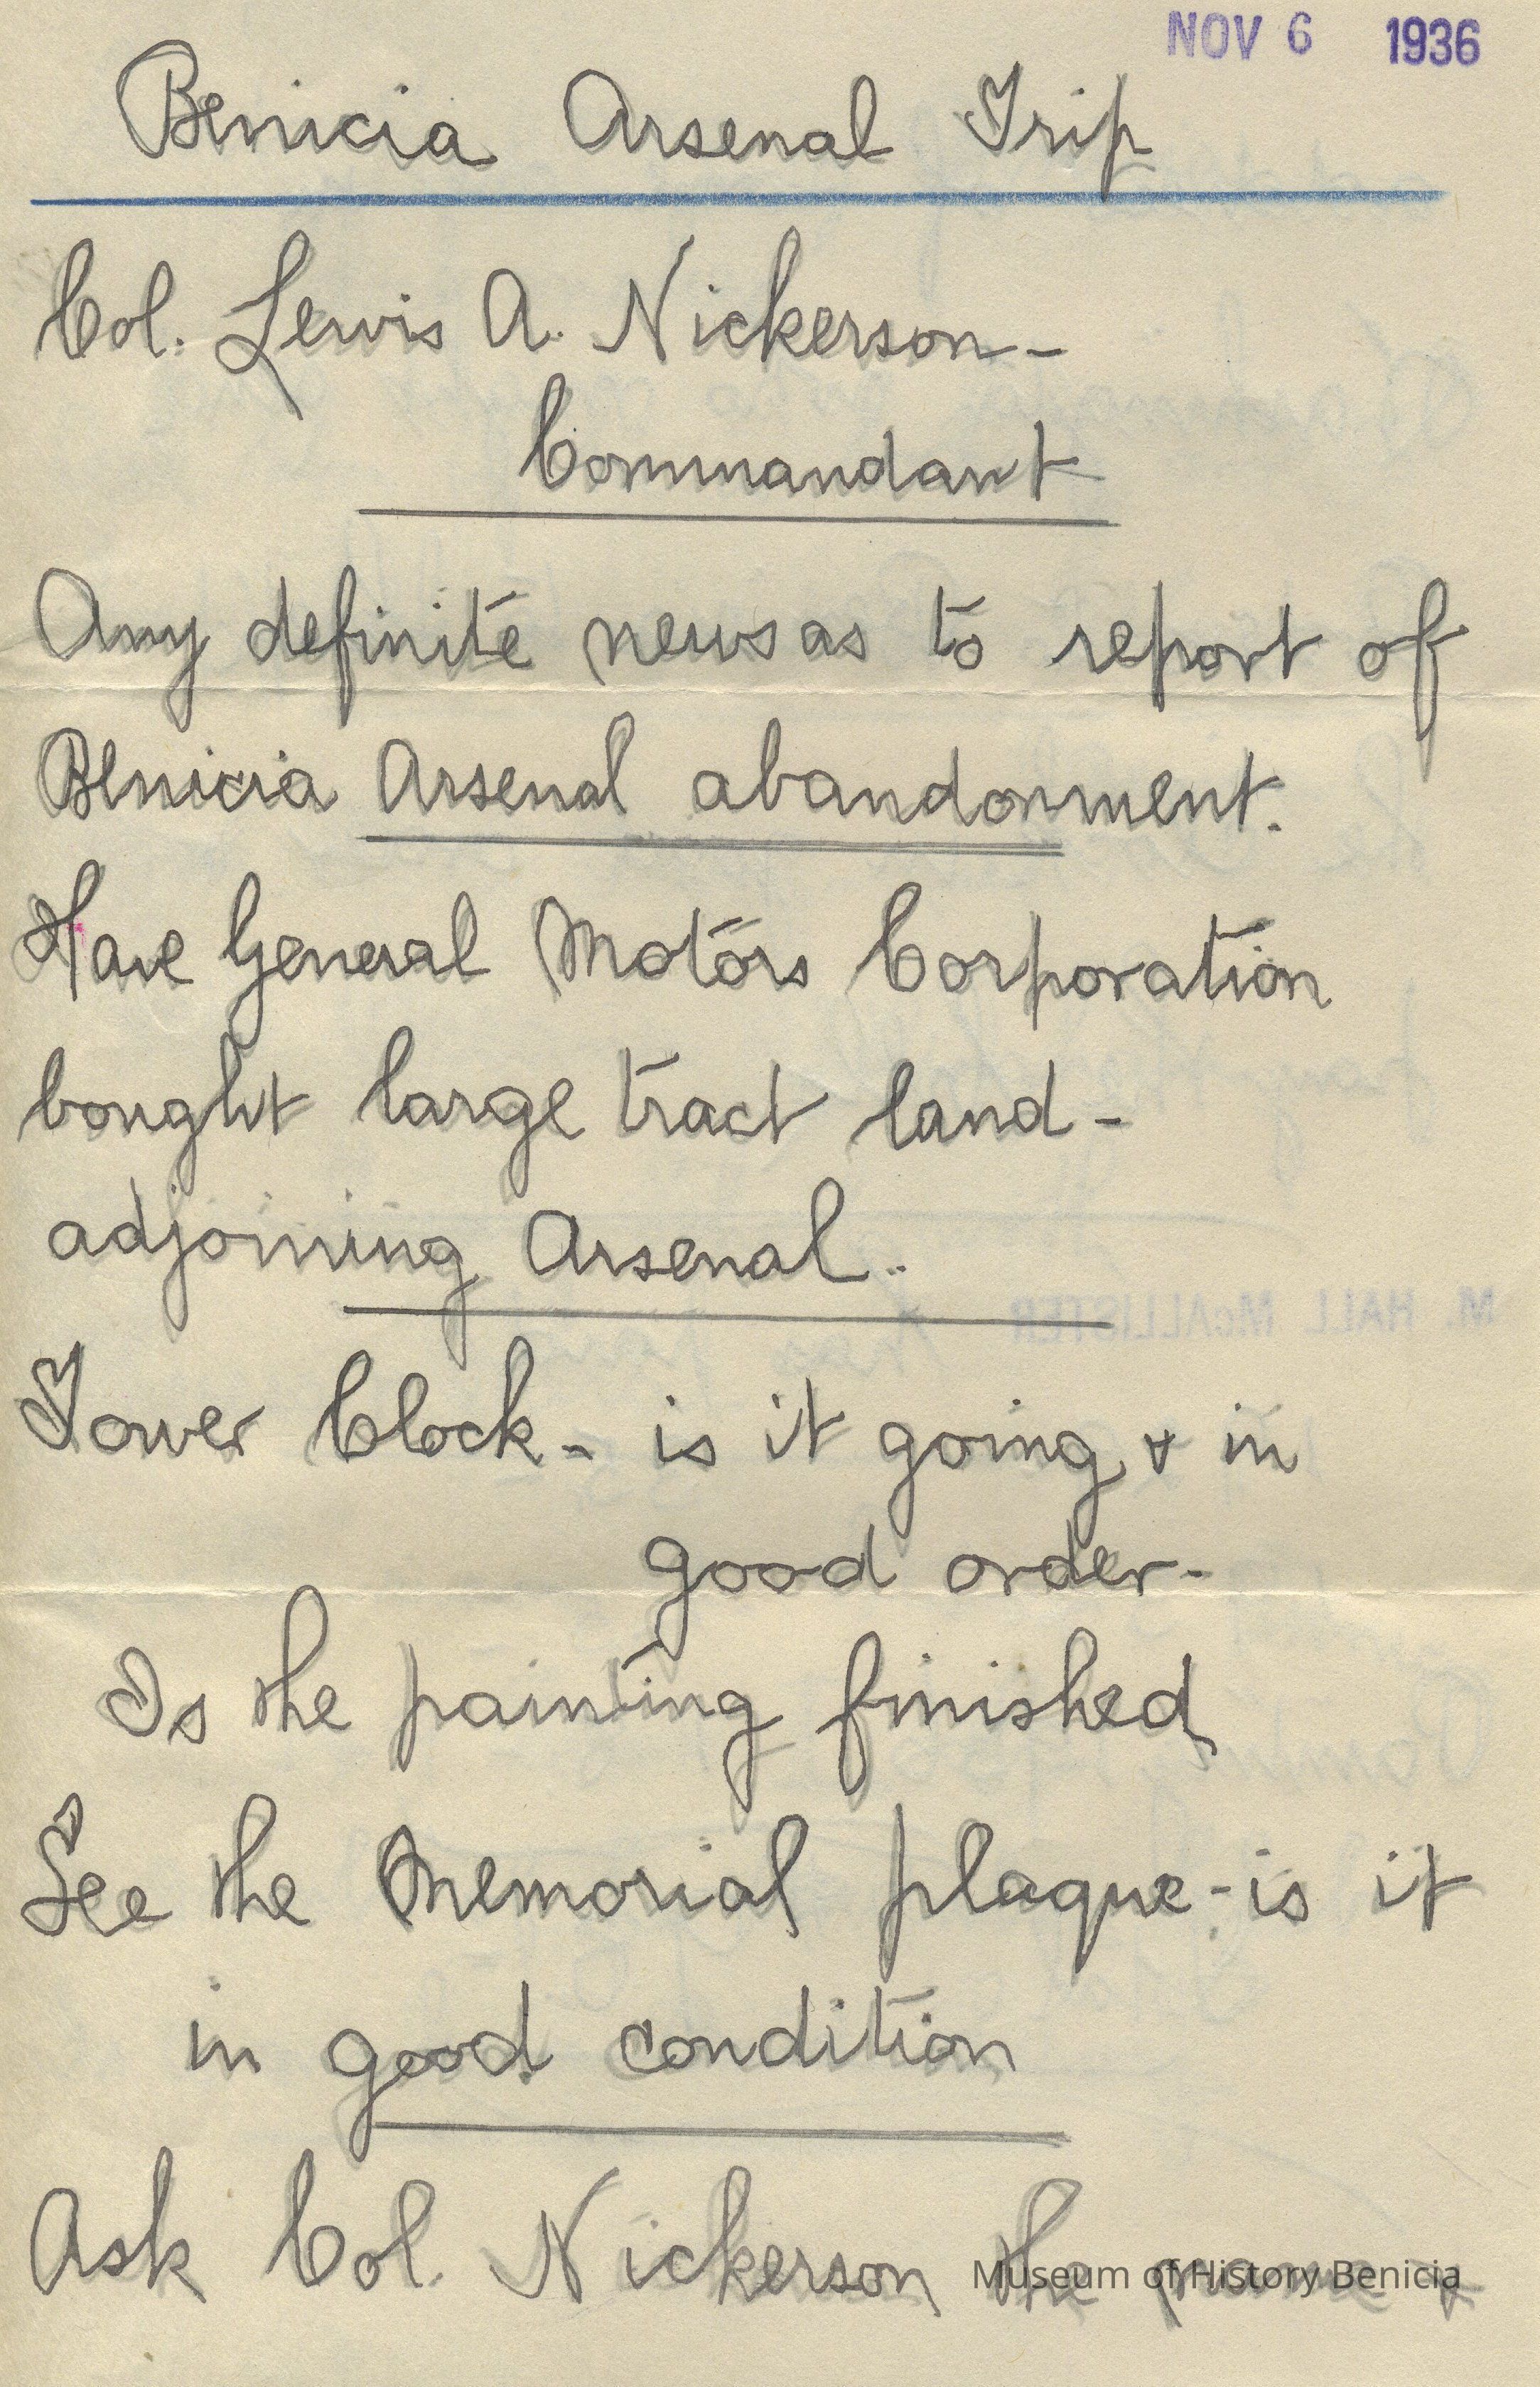 NOV 6 1936
Benicia Arsenal Trip
Col. Lewis A. Nickerson-
Commandant
Any definite news as to report of
Benicia Arsenal abandonment.
Have General Motors Corporation
bought large tract land-
adjoining Arsenal..
Tower Clock - is it going & in
good order-
Is the painting finished
See the Memorial plaque - is it
in good condition
Ask Col. Nickerson the name &
Museum of History Benicia
M. HALL McALLISTER